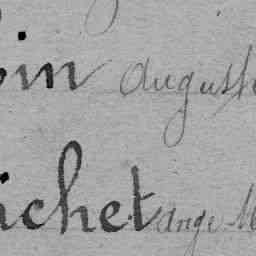 in August
ichet ange M